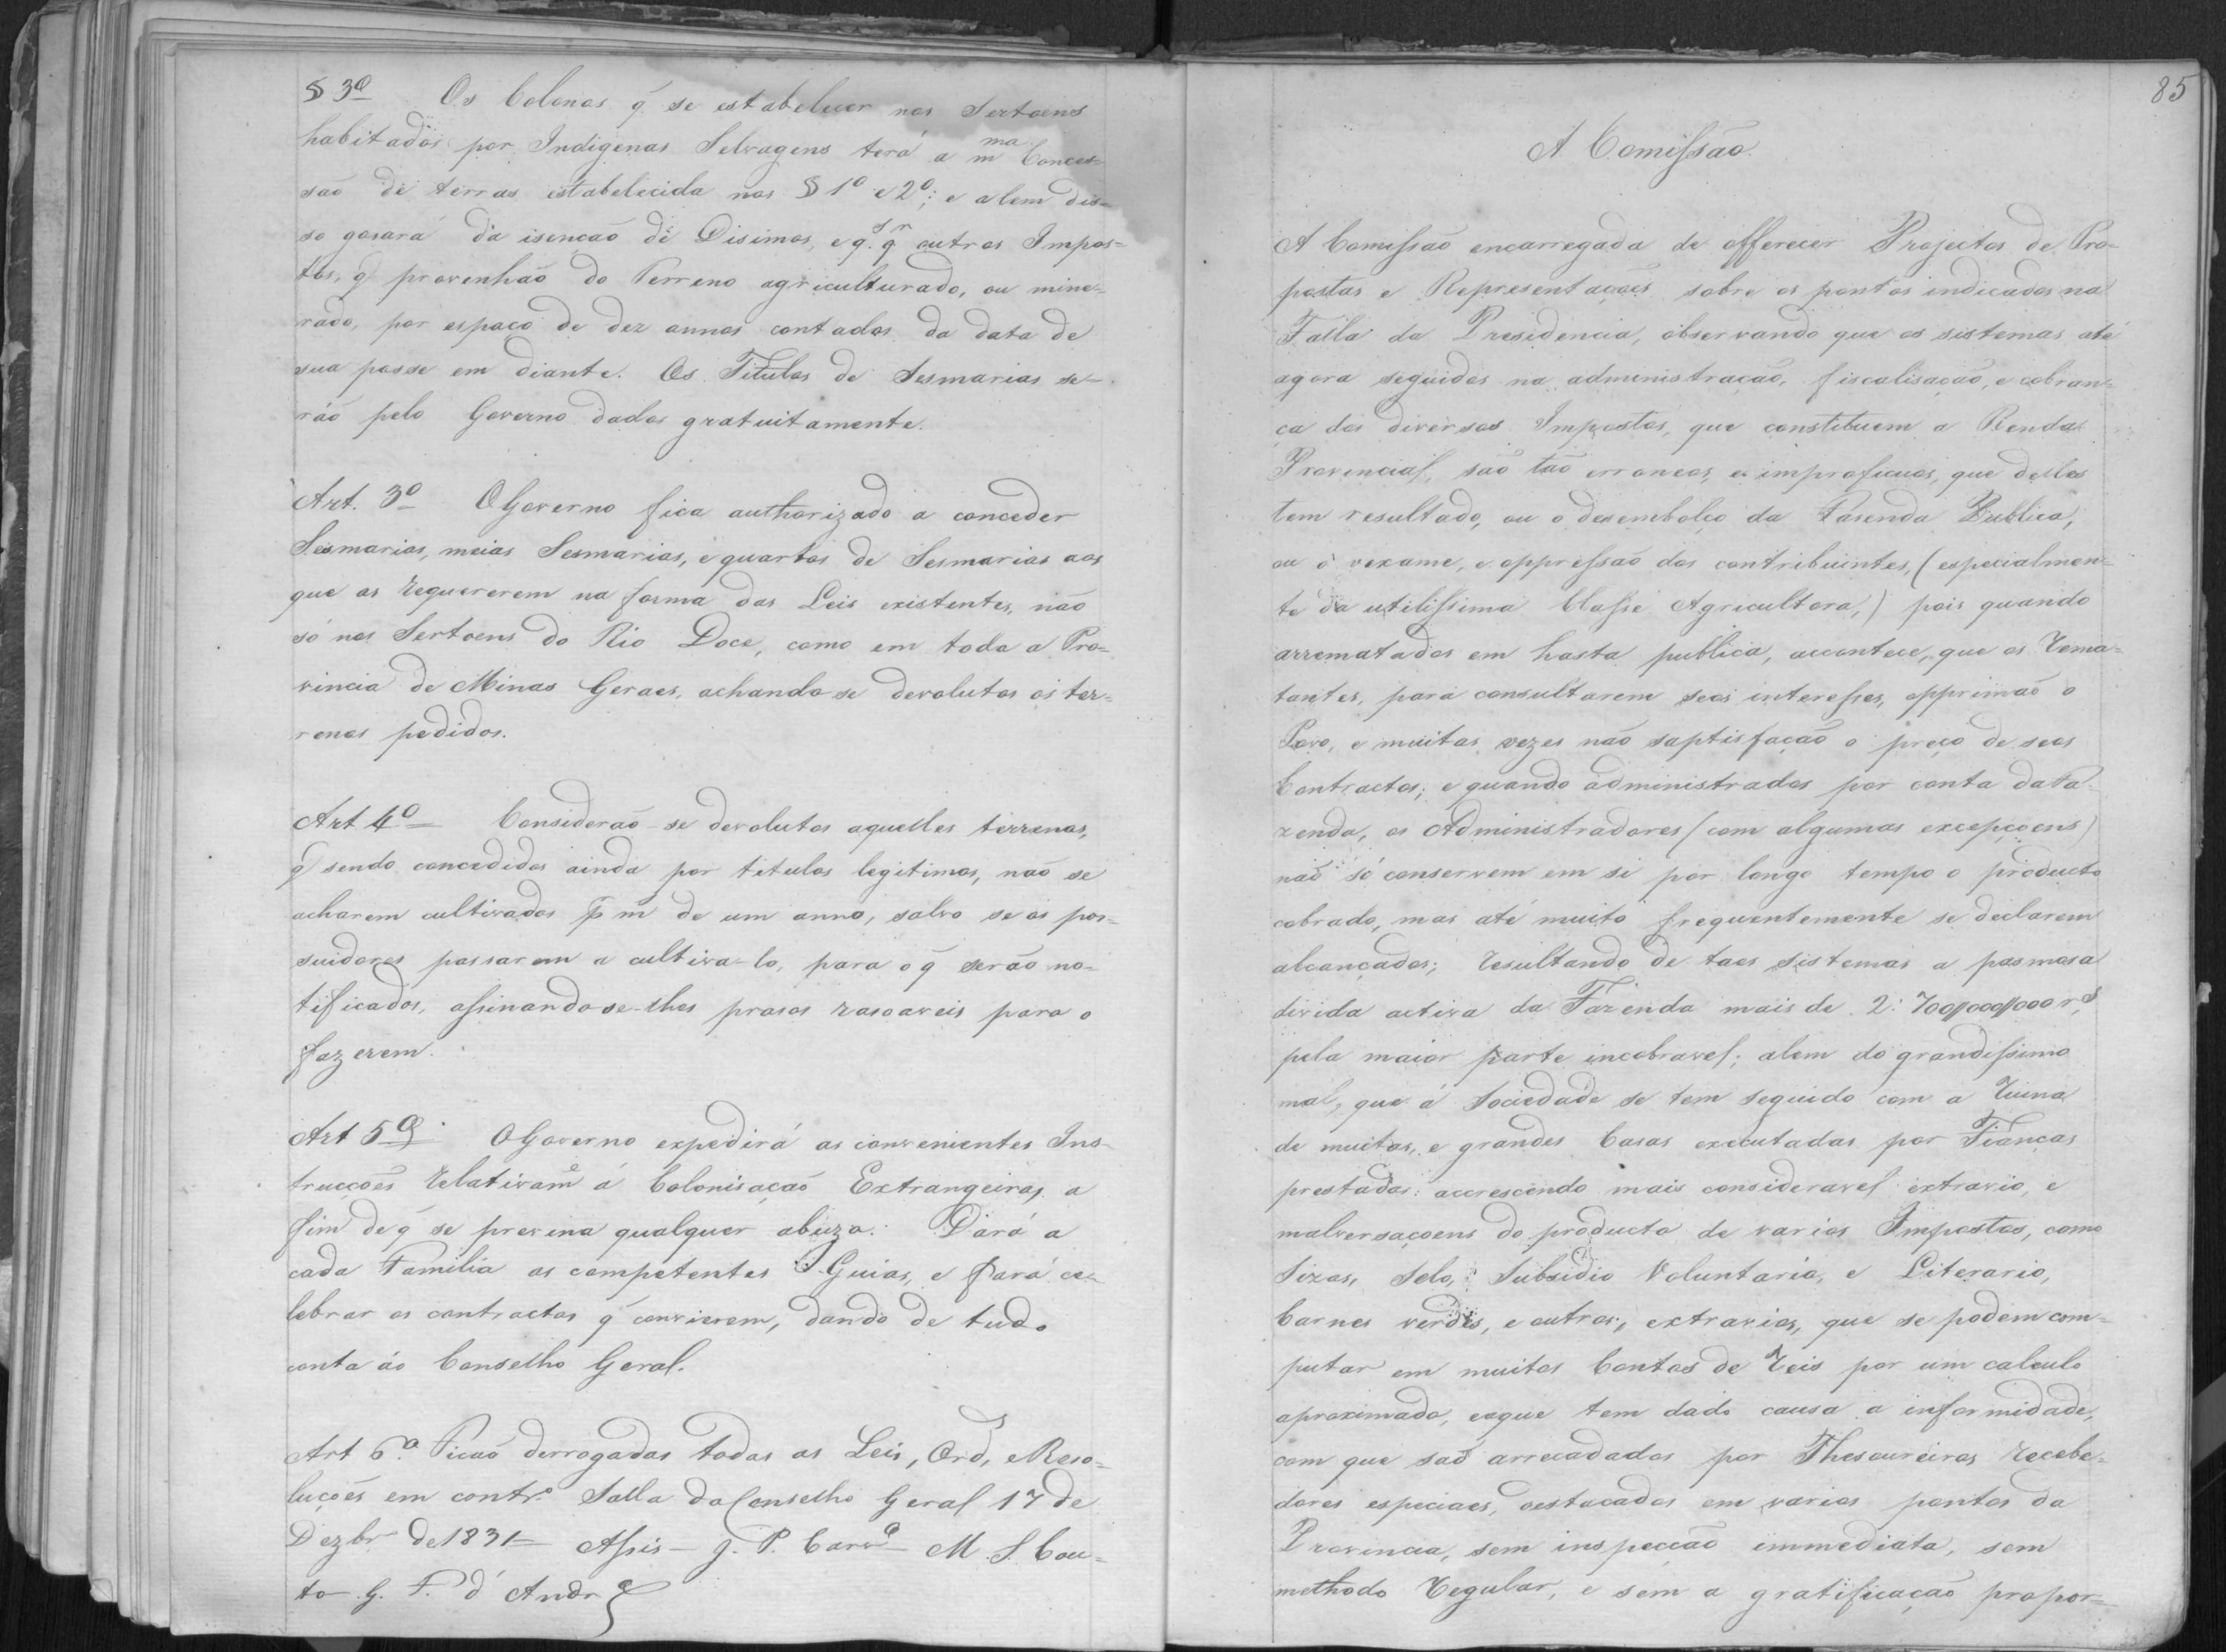 § 3º Os Colonos q̃ se estabelecer nos Sertoens
habitados por Indigenas Selvagens terá a mma Conces=
são de terras estabelecida nos § 1º e 2º; e alem dis=
so gosará da isenção de Disimos, e q.sq.r outros Impos=
tos, q̃ provenhão do Terreno agriculturado, ou mine=
rado, por espaço de dez annos contados da data de
sua posse em diante. Os Titulos de Sesmarias se=
rão pelo Governo dados gratuitamente.
Art. 3º O Governo fica authorizado a conceder
Sesmarias, meias Sesmarias, e quartos de Sesmarias aos
que as requererem na forma das Leis existentes, não
só nos Sertoens do Rio Doce, como em toda a Pro=
vincia de Minas Geraes, achando se devolutos os ter=
renos pedidos.
Art 4º Considerão-se devolutos aquelles terrenos,
q̃ sendo concedidos ainda por titulos legitimos, não se
acharem cultivados p m̃ de um anno, salvo se os pos=
suidores passarem a cultiva-lo, para o q̃ serão no=
tificados, assinando-se-lhes prasos rasoaveis para o
fazerem.
Art 5º O Governo expedirá as convenientes Ins=
trucções relativam.e á Colonisação Extrangeira, a
fim de q̃ se previna qualquer abuzo. Dará a
cada Familia as competentes Guias, e fará ce=
lebrar os contractos q̃ convierem, dando de tudo
conta ao Conselho Geral.
Art 6º Ficão derrogadas todas as Leis, Ord, e Reso=
luções em contr.º Salla do Conselho Geral 17 de
Dezbr de 1831 — Assis — J. P. Carvº — M. S. Cou=
to — G. F. d'Andre
85
A Comissão
A Comissão encarregada de offerecer Projectos de Pro=
postas e Representações sobre os pontos indicados na
Falla da Presidencia, observando que os sistemas até
agora seguidos na administração, fiscalisação, e cobran=
ça dos diversos Impostos, que constituem a Renda
Provincial, são tão erroneos, e improficuos, que delles
tem resultado, ou o desembolço da Fasenda Publica,
ou o vexame, e oppressão dos contribuintes, (especialmen=
te da utilissima Classe Agricultora,) pois quando
arrematados em hasta publica, acontece, que os rema=
tantes, para consultarem seos interesses, opprimão o
Povo, e muitas vezes não saptisfação o preço de seos
Contractos; e quando administrados por conta da Fa=
zenda, os Administradores (com algumas excepçoens)
não só conservem em si por longo tempo o producto
cobrado, mas até muito frequentemente se declarem
alcançados; resultando de taes sistemas a pasmosa
divida activa da Fazenda mais de 2:700//000//000 rs,
pela maior parte incobravel; alem do grandissimo
mal, que á Sociedade se tem seguido com a ruina
de muitas, e grandes Casas executadas por Fianças
prestadas: accrescendo mais consideravel extravio, e
malversaçoens do producto de varios Impostos, como
Sizas, Selo, Subsidio Voluntario, e Literario,
Carnes verdes, e outros, extravios, que se podem com=
putar em muitos Contos de Reis por um calculo
aproximado, e que tem dado causa a informidade,
com que são arrecadados por Thesoureiros recebe=
dores especiaes, destacados em varios pontos da
Provincia, sem inspecção immediata, sem
methodo regular, e sem a gratificação propor=